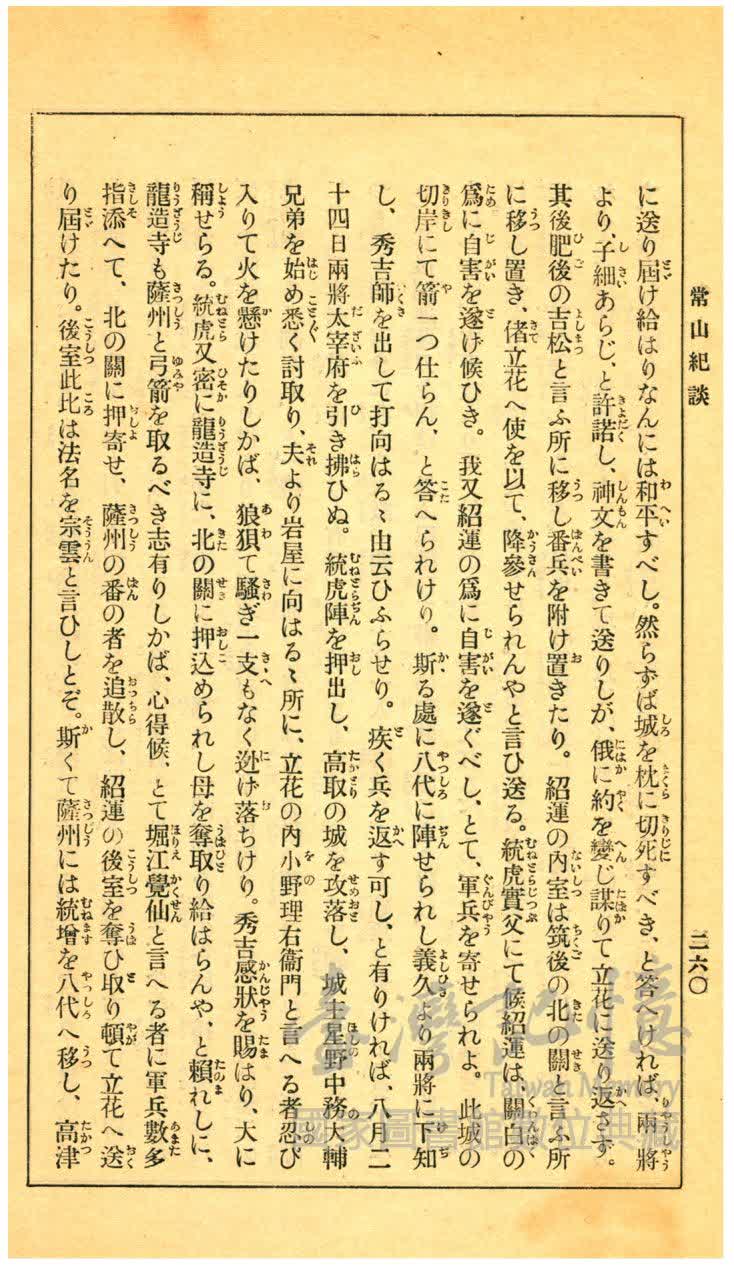 常山紀談
二六〇
に送り屆け給はりなんには和平すべし。然らずば城を枕に切死すべき、と答へければ、兩將
より、子細あらじ、と許諾し、神文を書きて送りしが、俄に約を變じ謀りて立花に送り返さず。
其後肥後の吉松と言ふ所に移し番兵を附け置きたり。紹運の內室は筑後の北の關と言ふ所
に移し置き、偖立花へ使を以て、降參せられんやと言ひ送る。統虎實父にて候紹運は、關白の
爲に自害を遂げ候ひき。我又紹運の爲に自害を遂ぐべし、とて、軍兵を寄せられよ。此城の
切岸にて箭一つ仕らん、と答へられけり。斯る處に八代に陣せられし義久より兩將に下知
し、秀吉師を出して打向はるゝ由云ひふらせり。疾く兵を返す可し、と有りければ、八月二
十四日兩將太宰府を引き拂ひぬ。統虎陣を押出し、高取の城を攻落し、城主星野中務大輔
兄弟を始め悉く討取り、夫より岩屋に向はるゝ所に、立花の內小野理右衞門と言へる者忍び
入りて火を懸けたりしかば、狼狽て騷ぎ一支もなく迯げ落ちけり。秀吉感狀を賜はり、大に
稱せらる。統虎又密に龍造寺に、北の關に押込められし母を奪取り給はらんや、と賴れしに、
龍造寺も薩州と弓箭を取るべき志有りしかば、心得候、とて堀江覺仙と言へる者に軍兵數多
指添へて、北の關に押寄せ、薩州の番の者を追散し、紹運の後室を奪ひ取り頓て立花へ送
り屆けたり。後室此比は法名を宗雲と言ひしとぞ。斯くて薩州には統增を八代へ移し、高津
臺灣記憶
Taiwan Memory
國家圖書館
典藏